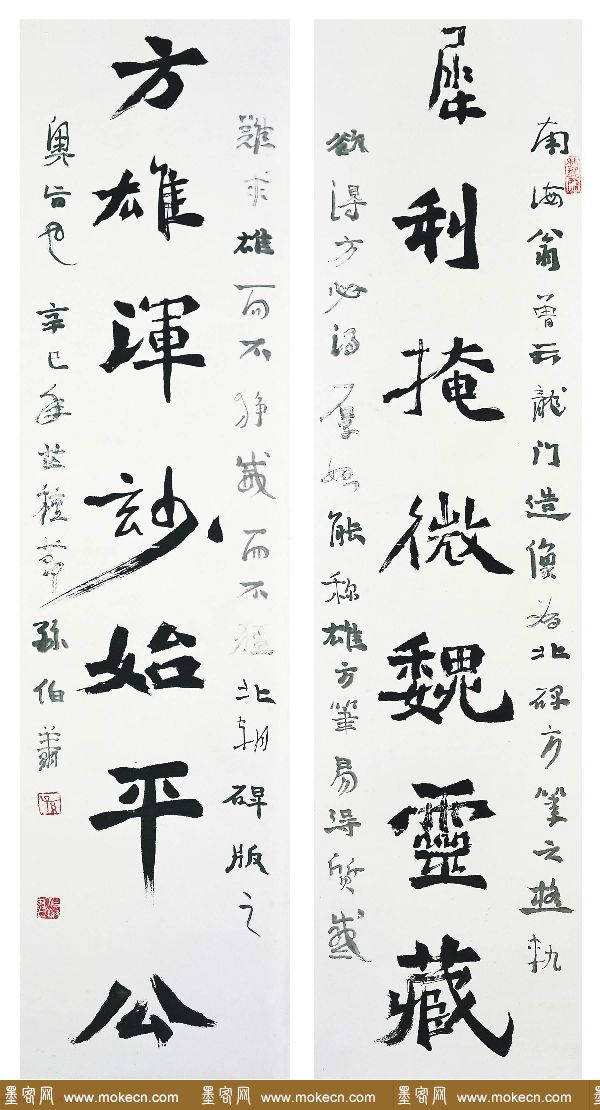 南海翁曾云龍门造像为北碑方筆之極軌
犀利掩微魏靈藏
欲得方必得厚始能称雄方筆易得質感
難求雄而不狰威而不猛北朝碑版之
方雄渾妙始平公
奧旨也 辛巳年芒種節 孫伯翔
墨客网 www.mokecn.com 墨客网 www.mokecn.com 墨客网 www.mokecn.com